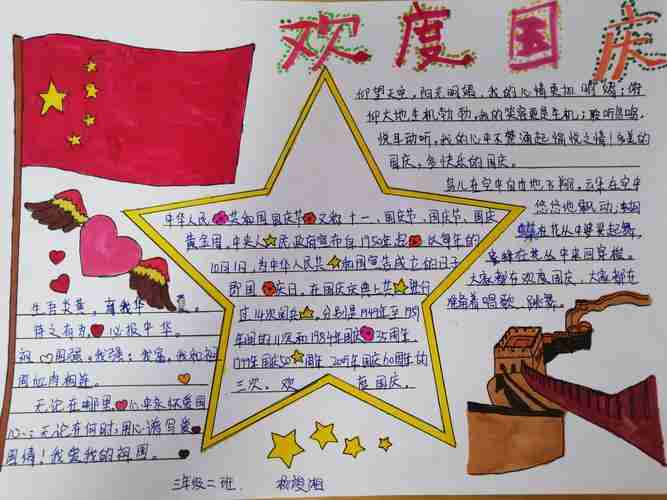 欢度国庆
仰望天空,阳光明媚,我的心情更加明媚;俯
仰大地生机勃勃,我的笑容更是生机;聆听鸟鸣,
悦耳动听,我的心中不禁涌起愉悦之情!多美的
国庆,多快乐的国庆。
鸟儿在空中自由地飞翔,云朵在空中
悠悠地飘动,蝴
蝶在花丛中翩翩起舞,
蜜蜂在花丛中来回穿梭。
大家都在欢度国庆,大家都在
唱歌、跳舞。
中华人民共和国国庆节又称十一、国庆节、国庆
黄金周,中央人民政府宣布自1950年起以每年的
10月1日,为中华人民共和国宣告成立的日子
即国庆日,在国庆庆典上共进行
过14次阅兵,分别是1949年至1959
年间的11次和1984年国庆35周年、
1999年国庆50周年2009年国庆60周年的
三次。欢度国庆。
生吾炎黄,育我华
待之有为,心报中华。
祖国强,我强;我富,我和祖
国血肉相连。
无论在哪里,心中永怀爱国
心;无论在何时,用心谱写爱
国情!我爱我的祖国。
三年级二班